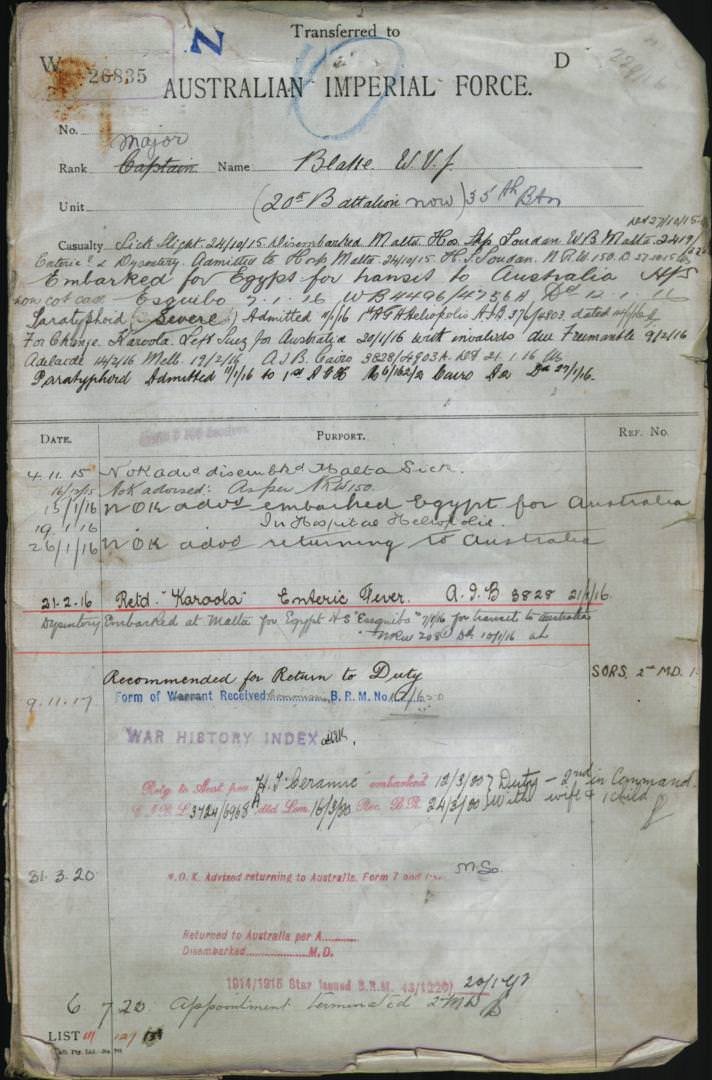 Transferred to
W D
26835
N
229/16
AUSTRALIAN IMPERIAL FORCE.
No.
Major
Rank Captain Name W. V. J.
Unit (20th Battalion now) 35th Btn
Dd 27/10/15
Casualty Sick Slight 24/10/15 Disembarked Malta Hos. Shp Soudan WB Malta 2419/
Enteric? & Dysentery. Admitted to Hosp Malta 24/10/15 H.S. Soudan. N.R.W. 150. D. 27.10.15
Embarked for Egypt for transit to Australia H/S
non cot case Esquibo 7.1.16 WB 4496/4756A, Dd 12.1.16
Paratyphoid (Severe) Admitted 11/1/16 1st A G H Heliopolis A.I.B 376/4803. dated 14/1/16
For Change. Karoola. Left Suez for Australia 20/1/16 with invalids due Fremantle 9/2/16
Adelaide 14/2/16 Melb. 19/2/16 A I B. Cairo 3828/4903A. Dd 21.1.16
Paratyphoid Admitted 11/1/16 to 1st A G H Cairo Dd 27/1/16.
DATE. PURPORT. REF. NO.
4.11.15 NoK advd disembkd Malta Sick.
16/12/15 NoK advised: As per NRW 150.
15/1/16 NOK advd embarked Egypt for Australia
19.1.16 In Hospital Heliopolis.
26/1/16 NOK advd returning to Australia
21.2.16 Retd. "Karoola" Enteric Fever. A.I.B 3828 21/1/16.
Dysentery Embarked at Malta for Egypt H S "Esquibo" 7/1/16 for transit to Australia
NRW 208 Dd 10/1/16
Recommended for Return to Duty SORS. 2nd MD.
9.11.17 Form of Warrant Received B.R.M. No.
WAR HISTORY INDEX
Retg to Aust. per H.T. "Ceramic" embarked 12/3/20 Duty - 2nd in Command.
3724/6968A dtd Lon 16/3/20 Rec. B.R. 24/3/20 With wife & 1 child
31.3.20 N.O.K. Advised returning to Australia. Form 7 and
Returned to Australia per A
Disembarked M.D.
1914/1915 Star Issued B.R.M. 43/1220)
6 7 20 Appointment terminated 2 MD
LIST